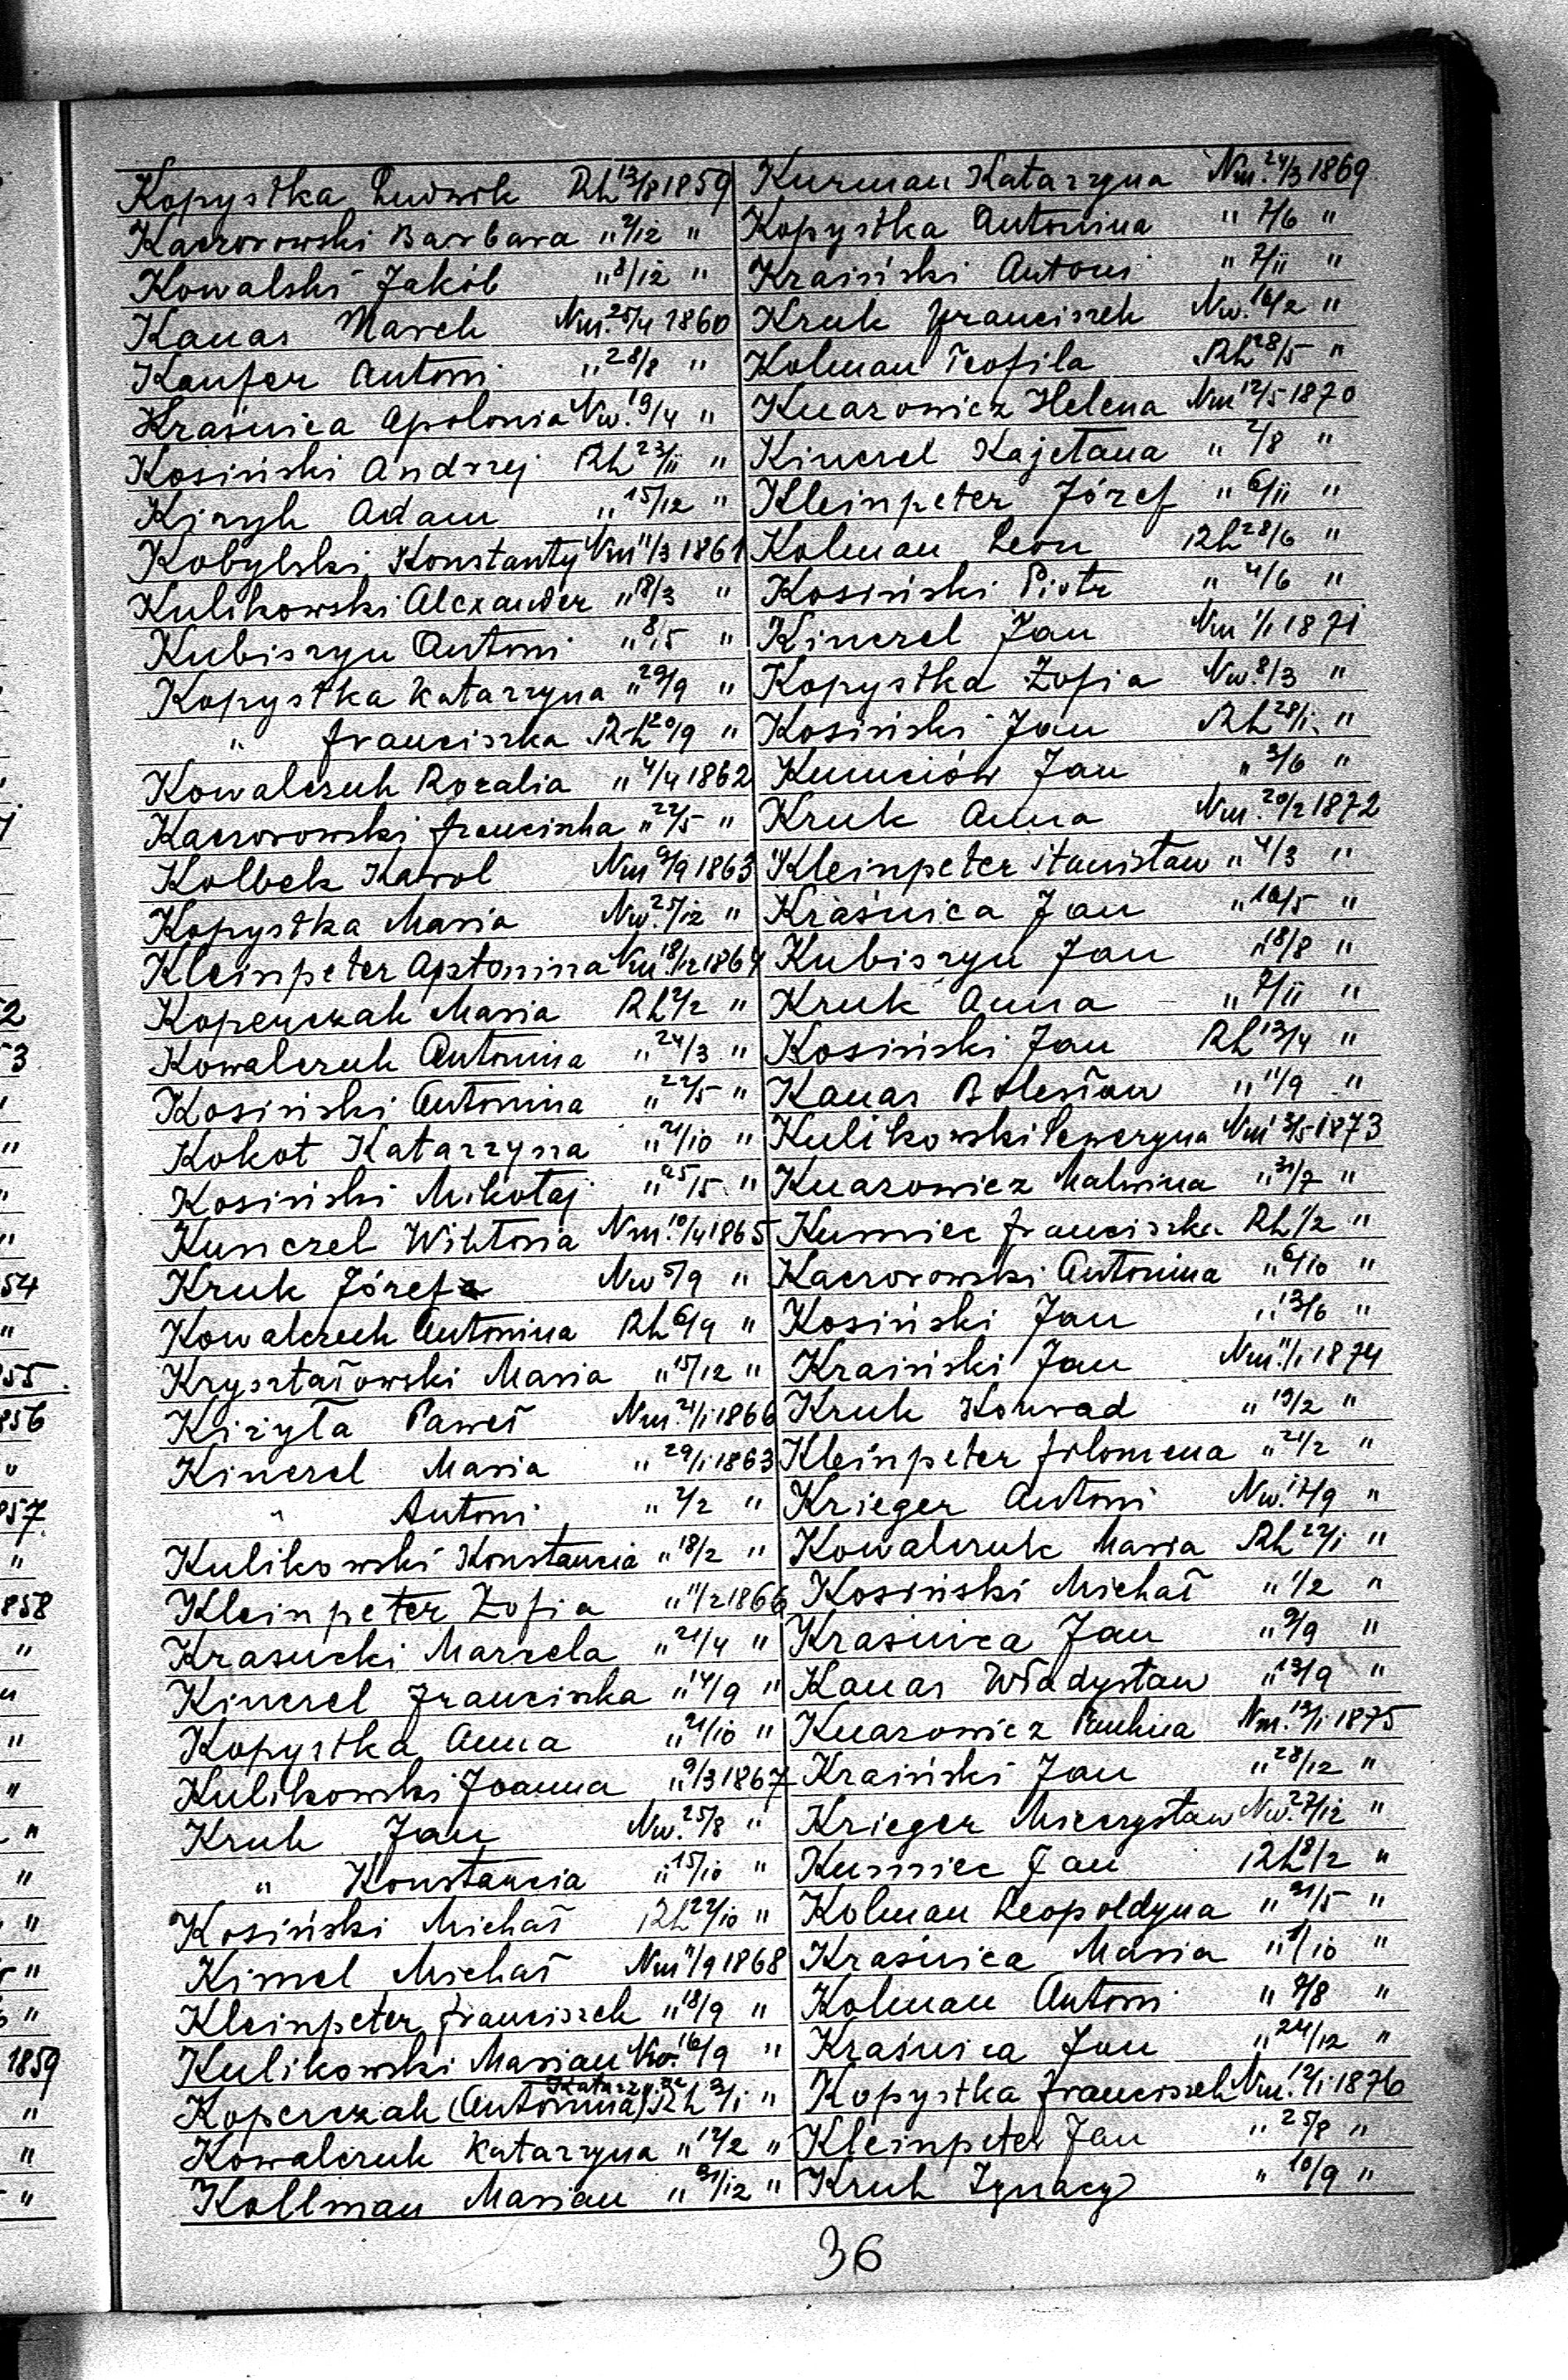 Kopystka Ludwik Rh 13/8 1859
Kaczorowski Barbara " 9/12 "
Kowalski Jakób " 8/12 "
Kanas Marek Nm. 25/4 1860
Kaufer Antoni " 28/8 "
Kraśnica Apolonia Nw. 19/4 "
Kosiński Andrzej Rh 23/11 "
Kizyk Adam " 15/12 "
Kobylski Konstanty Nm 11/3 1861
Kulikowski Alexander " 18/3 "
Kubiszyn Antoni " 8/5 "
Kopystka Katarzyna " 29/9 "
" Franciszka Rh 20/9 "
Kowalczuk Rozalia " 4/4 1862
Kaczorowski Franciszka " 22/5 "
Kolbek Karol Nm 9/9 1863
Kopystka Maria Nw. 25/12 "
Kleinpeter Antonina Nm. 18/12 1864
Koperczak Maria Rh 2/2 "
Kowalczuk Antonina " 24/3 "
Kosiński Antonina " 22/5 "
Kokot Katarzyna " 21/10 "
Kosiński Mikołaj " 25/5 "
Kunczel Wiktoria Nm. 10/4 1865
Kruk Józefa Nw 5/9 "
Kowalczuk Antonina Rh 6/9 "
Kryształowski Maria " 15/12 "
Kiżyła Paweł Nm. 21/1 1866
Kinczel Maria " 29/1 1863
" Antoni " 2/2 "
Kulikowski Konstancia " 18/2 "
Kleinpeter Zofia " 11/2 1866
Krasucki Marcela " 21/4 "
Kinczel Franciszka " 14/9 "
Kopystka Anna " 21/10 "
Kulikowski Joanna " 9/3 1867
Kruk Jan Nw. 25/8 "
" Konstancia " 15/10 "
Kosiński Michał Rh 22/10 "
Kimel Michał Nm 11/9 1868
Kleinpeter Franciszek " 18/9 "
Kulikowski Marian Nw. 16/9 "
Katarzyna
Koperczak (Antonina) Rh 3/1 "
Kowalczuk Katarzyna " 12/2 "
Kollman Marian " 31/12 "
Kurman Katarzyna Nm. 24/3 1869
Kopystka Antonina " 7/6 "
Kraiński Antoni " 7/11 "
Kruk Franciszek Nw. 16/2 "
Kolman Teofila Rh 28/5 "
Knazowicz Helena Nm 12/5 1870
Kinczel Kajetana " 2/8 "
Kleinpeter Józef " 6/11 "
Kolman Leon Rh 28/6 "
Kosiński Piotr " 4/6 "
Kinczel Jan Nm 1/1 1871
Kopystka Zofia Nw. 8/3 "
Kosiński Jan Rh 28/1 "
Kumciów Jan " 3/6 "
Kruk Anna Nm. 20/2 1872
Kleinpeter Stanisław " 4/3 "
Kraśnica Jan " 10/5 "
Kubiszyn Jan " 18/8 "
Kruk Anna " 7/11 "
Kosiński Jan Rh 13/4 "
Kanas Bolesław " 11/9 "
Kulikowski Seweryna Nm 13/5 1873
Knazowicz Malwina " 31/7 "
Kumiec Franciszka Rh 1/2 "
Kaczorowski Antonina " 6/10 "
Kosiński Jan " 13/6 "
Kraiński Jan Nm 11/1 1874
Kruk Konrad " 19/2 "
Kleinpeter Filomena " 21/2 "
Krieger Antoni Nw. 17/9 "
Kowalczuk Maria Rh 22/1 "
Kosiński Michał " 1/2 "
Kraśnica Jan " 9/9 "
Kanas Władysław " 13/9 "
Knazowicz Paulina Nm. 12/1 1875
Kraiński Jan " 28/12 "
Krieger Mieczysław Nw. 27/12 "
Kumiec Jan Rh 8/2 "
Kolman Leopoldyna " 31/5 "
Kraśnica Maria " 1/10 "
Kolman Antoni " 9/8 "
Kraśnica Jan " 24/12 "
Kopystka Franciszek Nm. 12/1 1876
Kleinpeter Jan " 25/8 "
Kruk Ignacy " 10/9 "
36